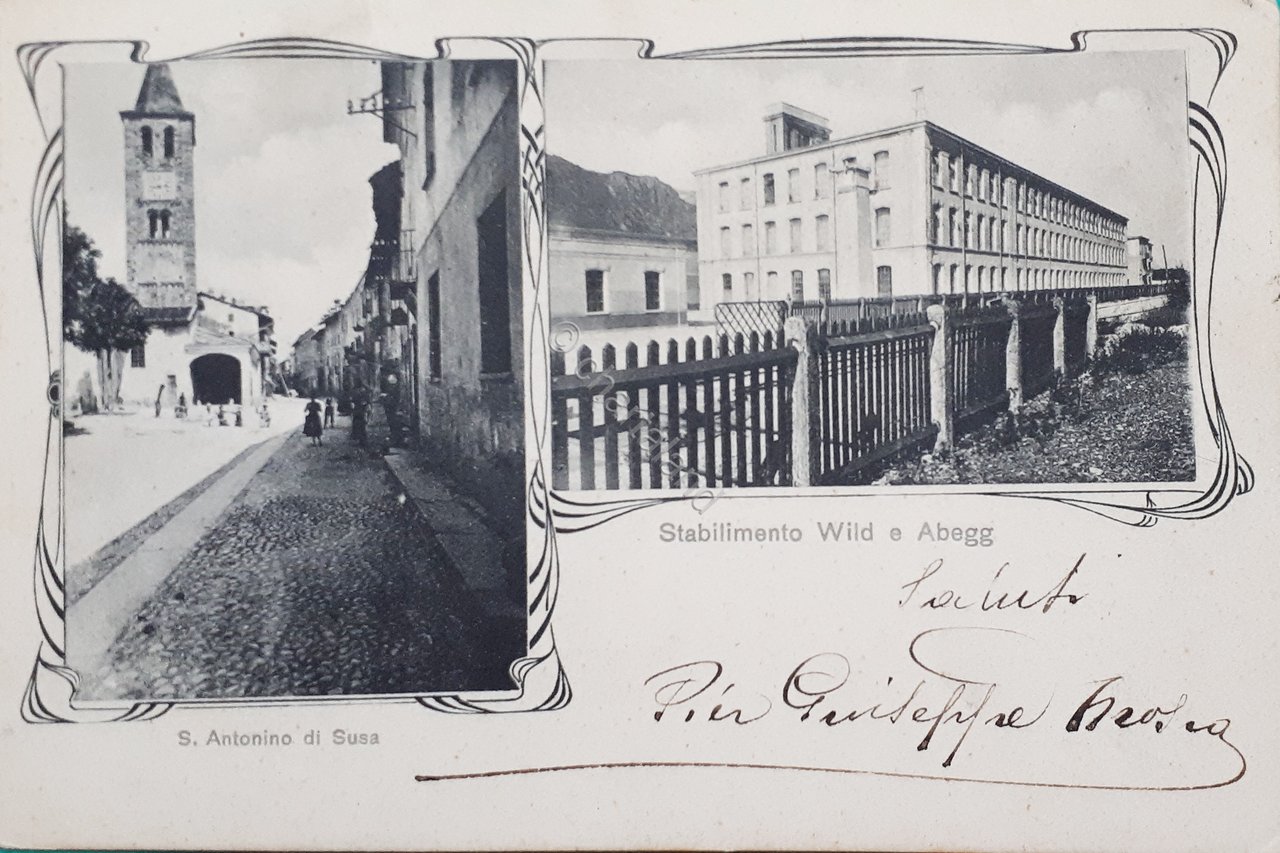 S. Antonino di Susa
Stabilimento Wild e Abegg
Saluti
Pier Giuseppe